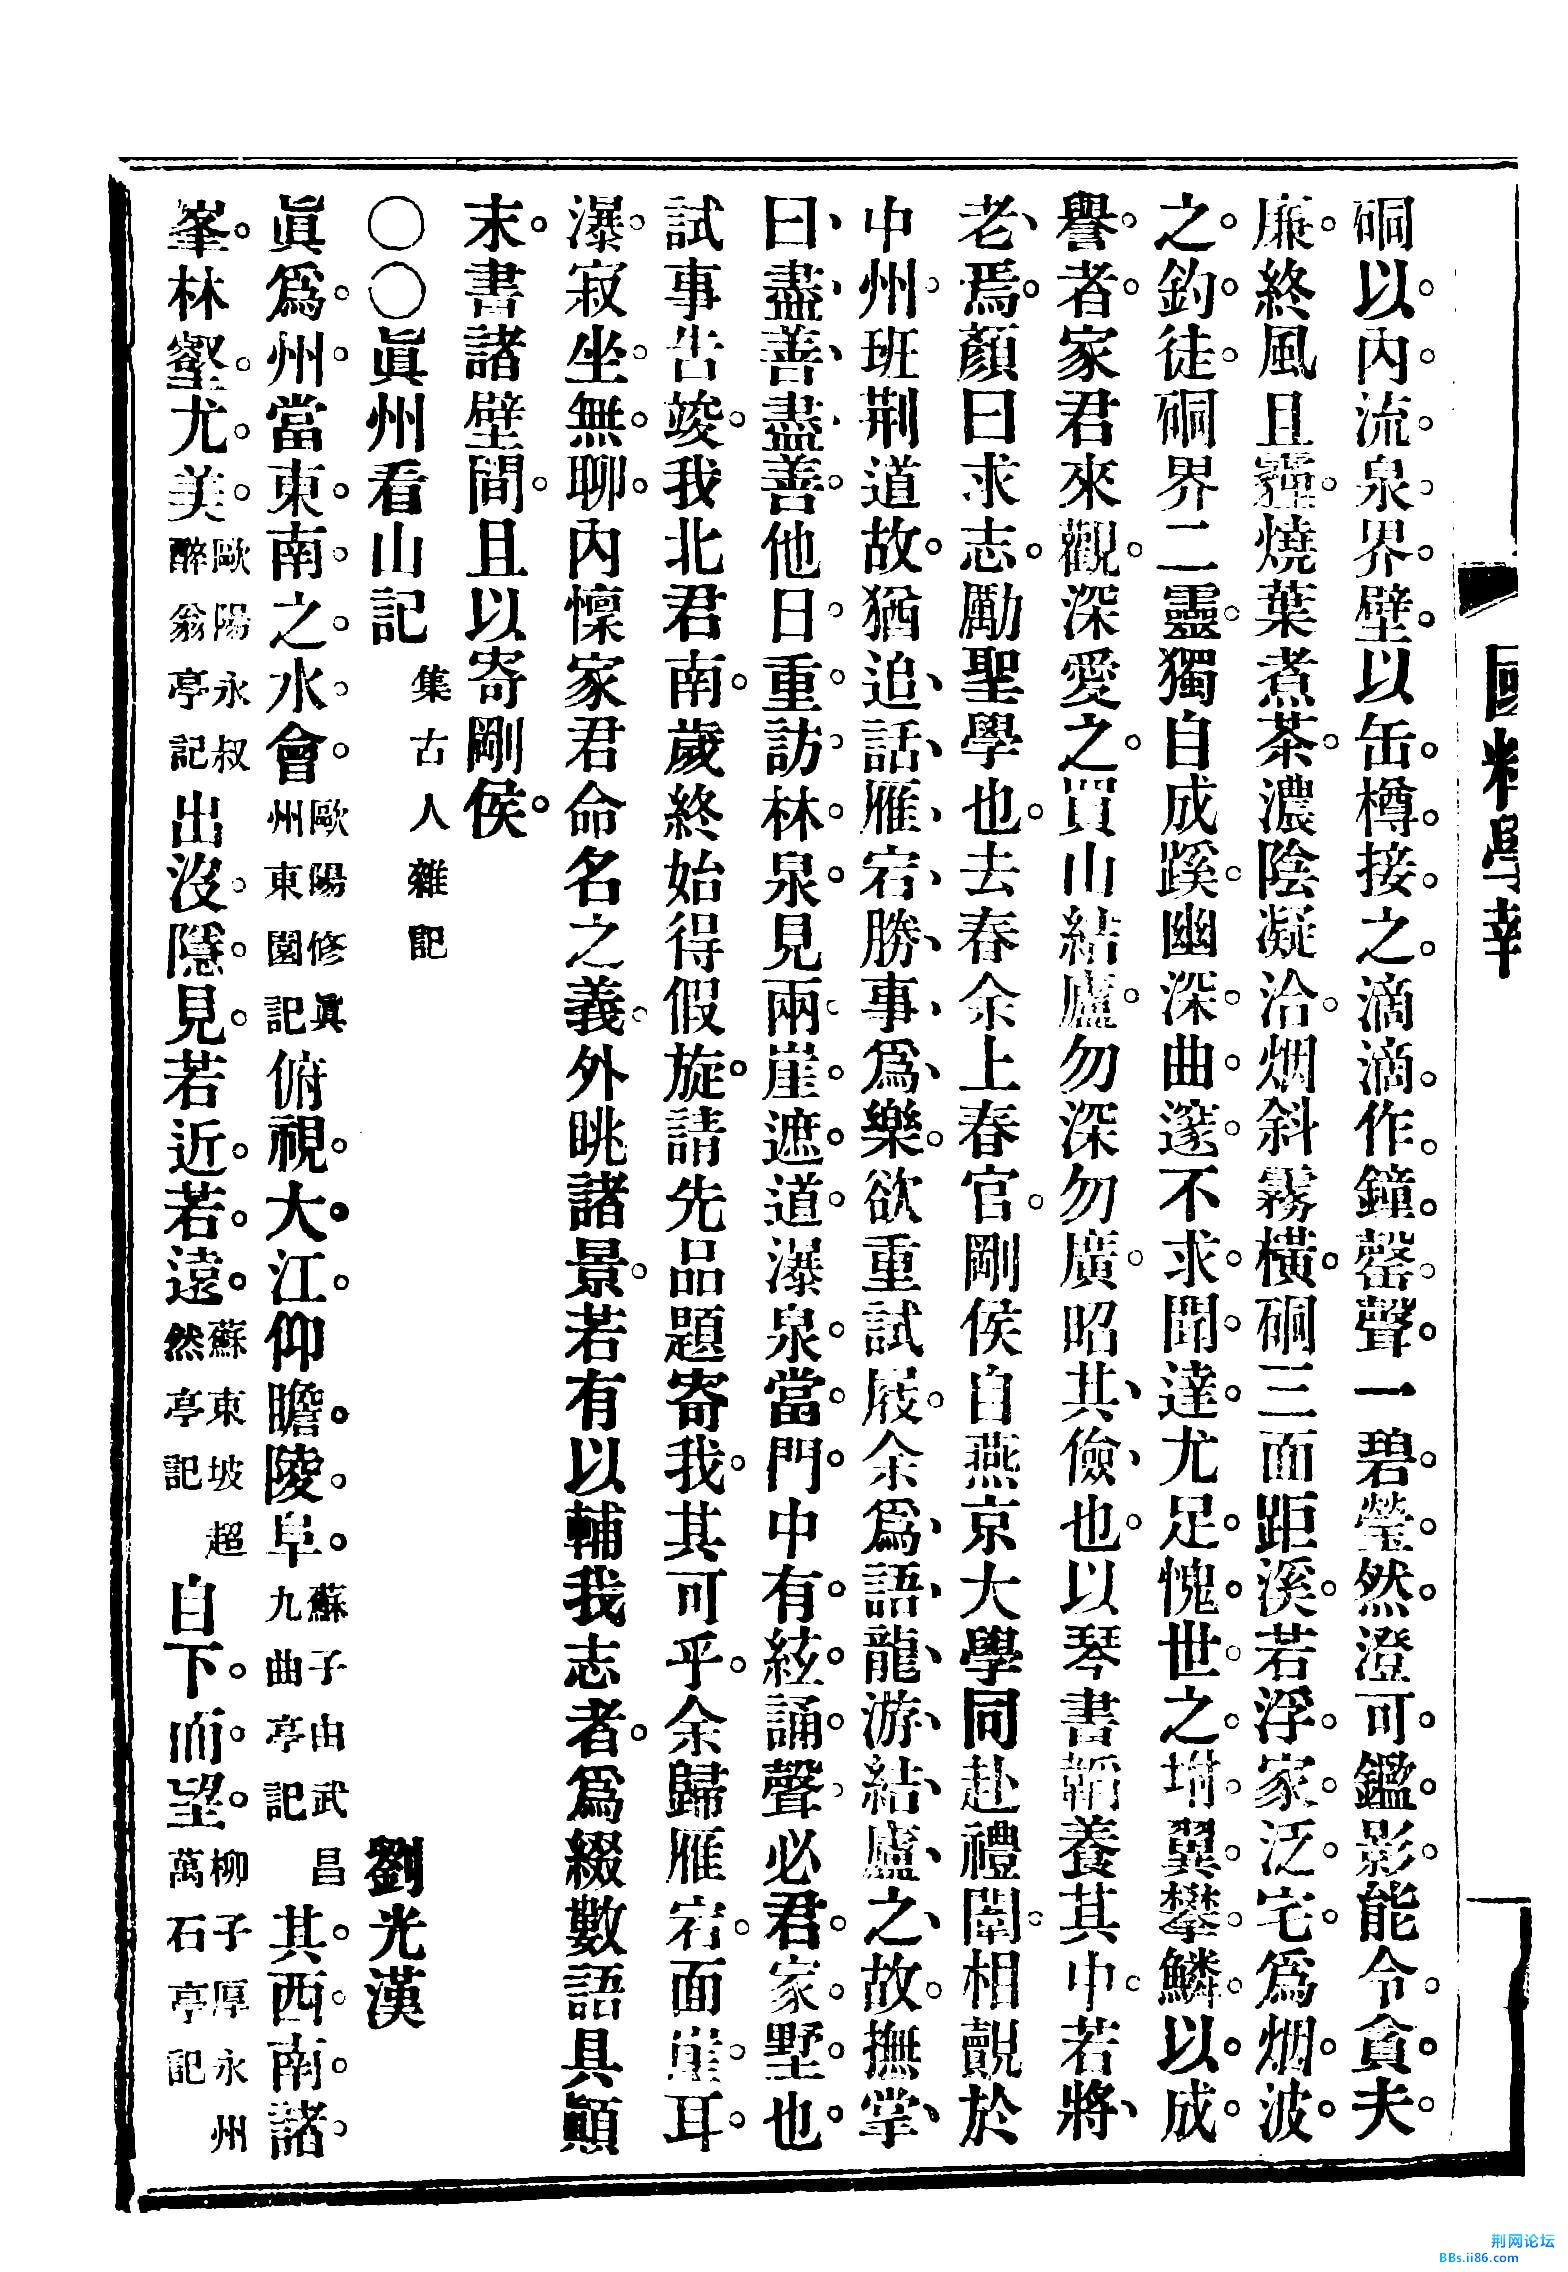 國粹學
硐以內流泉界壁以缶樽接之滴滴作鐘罄聲一碧瑩然澄可鑑影能令貪夫
廉終風且霾燒葉煮茶濃陰凝洽烟斜霧橫硐三面距溪若浮家泛宅爲烟波
之釣徒硐界二靈獨自成蹊幽深曲邃不求聞達尤足愧世之坿翼攀鱗以成
譽者家君來觀深愛之買山結廬勿深勿廣昭其儉也以琴書韜養其中若將
老焉顏曰求志勵聖學也去春余上春官剛侯自燕京大學同赴禮闈相覿於
中州班荆道故猶追話雁宕勝事爲樂欲重試屐余爲語龍游結廬之故撫掌
曰盡善盡善他日重訪林泉見兩崖遮道瀑泉當門中有絃誦聲必君家墅也
試事告竣我北君南歲終始得假旋請先品題寄我其可乎余歸雁宕面崖耳
瀑寂坐無聊內懍家君命名之義外眺諸景若有以輔我志者爲綴數語具顚
末書諸壁間且以寄剛侯
〇〇眞州看山記 集古人雜記 劉光漢
眞爲州當東南之水會歐陽修眞州東園記俯視大江仰瞻陵阜蘇子由武昌九曲亭記其西南諸
峯林壑尤美歐陽永叔醉翁亭記出沒隱見若近若遠蘇東坡超然亭記自下而望柳子厚永州萬石亭記
荆网论坛
BBs.ii86.com